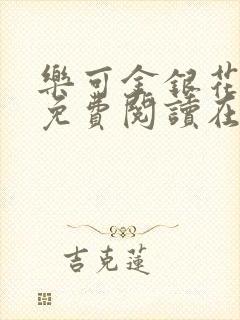 樂可金銀花
免費閱讀在
吉克蓮